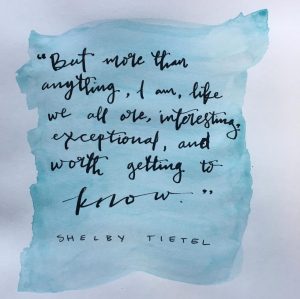 "But more than
anything, I am, like
we all are, interesting,
exceptional, and
worth getting to
know."
SHELBY TIETEL